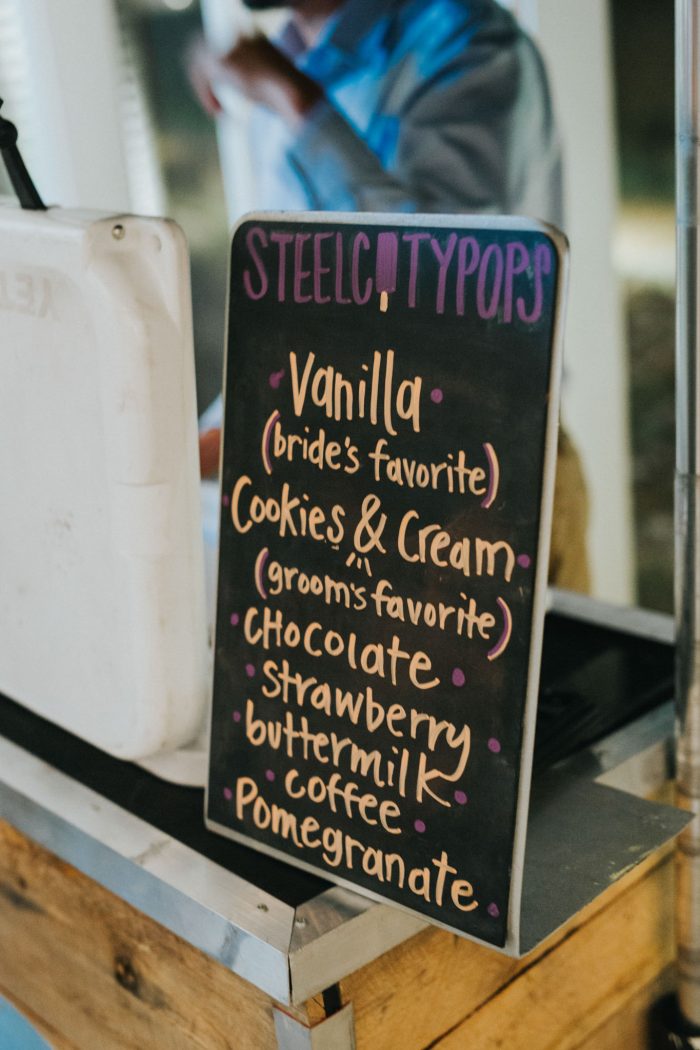 STEELCITYPOPS
Vanilla
(bride's favorite)
Cookies & Cream
(groom's favorite)
CHocolate
strawberry
buttermilk
coffee
Pomegranate